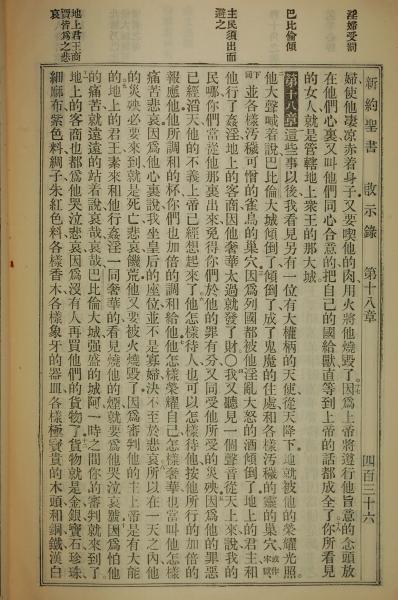 新約聖書　啟示錄　第十八章　四百三十六
淫婦受罰
巴比倫傾
主民須出而避之
地上君王商賈皆為之悲哀
婦使他凄凉赤着身子又要喫他的肉用火將他燒毀了因爲上帝將遵行他旨意的念頭放
在他們心裏又叫他們同心合意的把自己的國給獸直等到上帝的話都成全了你所看見
的女人就是管轄地上衆王的那大城
第十八章 這些事以後我看見另有一位有大權柄的天使從天降下地就被他的榮耀光照
他大聲喊着說巴比倫大城傾倒了傾倒了成了鬼魔的住處和各樣汚穢的靈的巢穴
並各樣汚穢可憎的雀鳥的巢穴因爲列國都被他淫亂大怒的酒傾倒了地上的君王和
他行了姦淫地上的客商因他奢華太過就發了財〇我又聽見一個聲音從天上來說我的
民哪你們當從他那裏出來免得你們於他的罪有分又同受他所受的災殃因爲他的罪惡
已經滔天他的不義上帝已經想起來了他怎樣待人也可以怎樣待他按他所行的加倍的
報應他他所調和的杯你們也加倍的調和給他他怎樣榮耀自己怎樣奢華也當叫他怎樣
痛苦悲哀因爲他心裏說我坐皇后的座位並不是寡婦決不至於悲哀所以在一天之內他
的災殃必要來到就是死亡悲哀饑荒他又要被火燒毀了因爲審判他的主上帝是有大能
的地上的君王素來和他行姦淫一同奢華的看見燒他的煙就要爲他哭泣哀號因爲怕他
的痛苦就遠遠的站着說哀哉哀哉巴比倫大城强盛的城阿一時之間你的審判就來到了
地上的客商也都爲他哭泣悲哀因爲沒有人再買他們的貨物了貨物就是金銀寶石珍珠
細麻布紫色料綢子朱紅色料各樣香木各樣象牙的器皿各樣極寶貴的木頭和銅鐵漢白